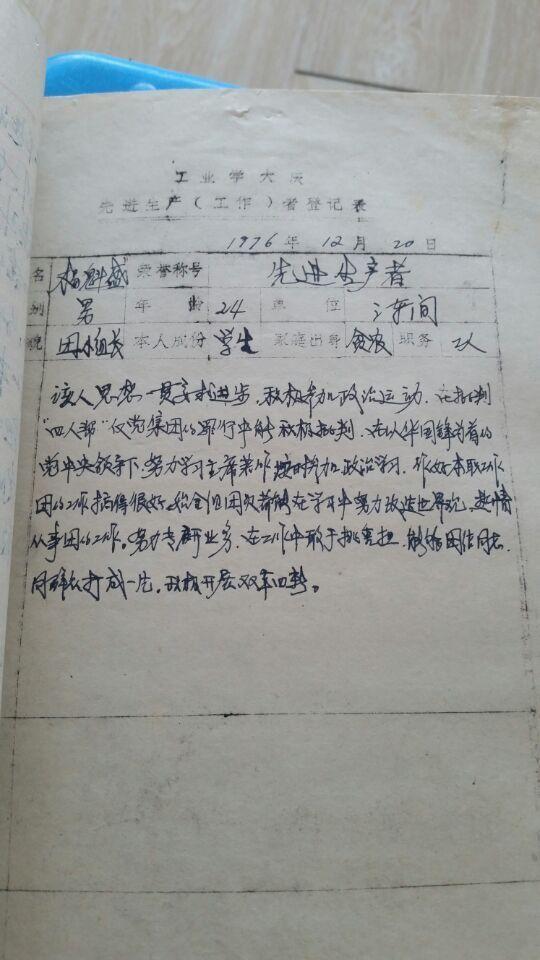 工业学大庆
先进生产（工作）者登记表
1976年12月20日
名 杨魁盛 荣誉称号 先进生产者
别 男 年龄 24 单位 车间
貌 团小组长 本人成份 学生 家庭出身 贫农 职务 工人
该人思想一贯要求进步，积极参加政治运动．在批判
"四人帮"反党集团的罪行中能积极批判．在以华国锋为首的
党中央领导下，努力学习主席著作，按时参加政治学习．作好本职工作
团的工作搞得很好，组全组团员都能在学习中努力改造世界观，热情
从事团的工作。努力专研业务．在工作中敢于挑重担．能够团结同志．
同群众打成一片．积极开展双革四新。